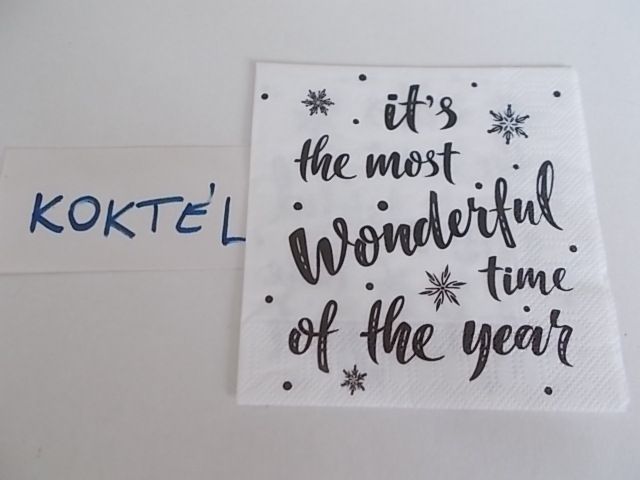 KOKTÉL
it's
the most
Wonderful
time
of the year